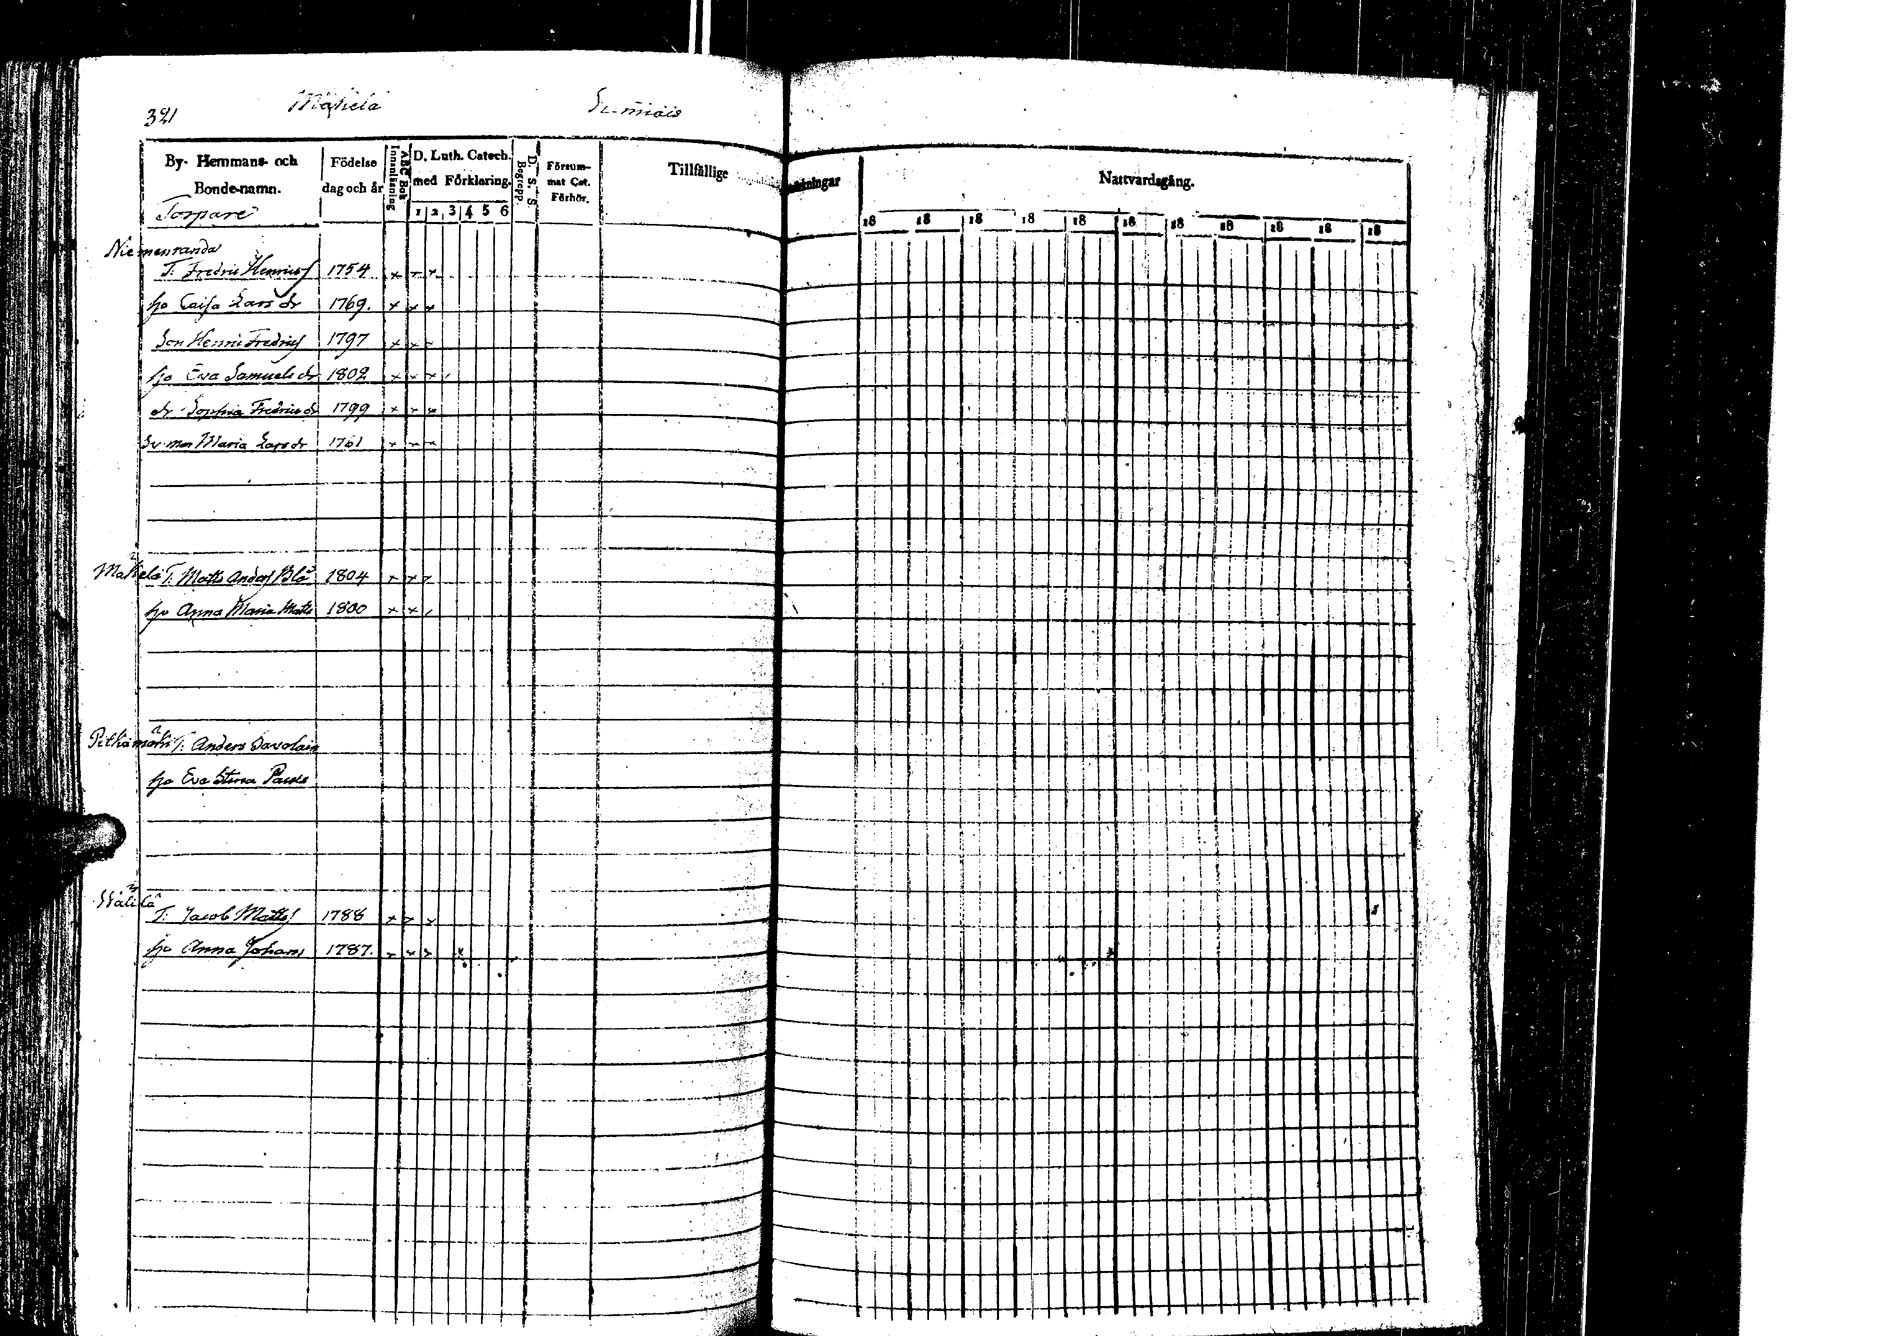 321 Mäkelä
By- Hemmans- och Bonde-namn.
Torpare
Födelse dag och år
Innanläsning
ABC Bok
D. Luth. Catech. med Förklaring.
1 2 3 4 5 6
D. S. S. Begrepp.
Försummat Cat. Förhör.
Tillfällige
Nattvardsgång.
18 18 18 18 18 18 18 18 18 18 18
Niemenranda
T. Fredric Henrics 1754 x x x
ho Caisa Lars dr 1769. x x x
Son Henric Fredrics 1797 x x
ho Eva Samuels dr 1802 x x x
dr Sophia Fredrics dr 1799 x x x
Sv. mor Maria Lars dr 1761 x x x
Mäkelä T. Matts Anders Blå 1804 x x x
ho Anna Maria Matts 1800 x x
T. Anders Savolain
ho Eva Stina Pauls
Wälilä
T. Jacob Matts 1788 x x x
ho Anna Johans 1787. x x x